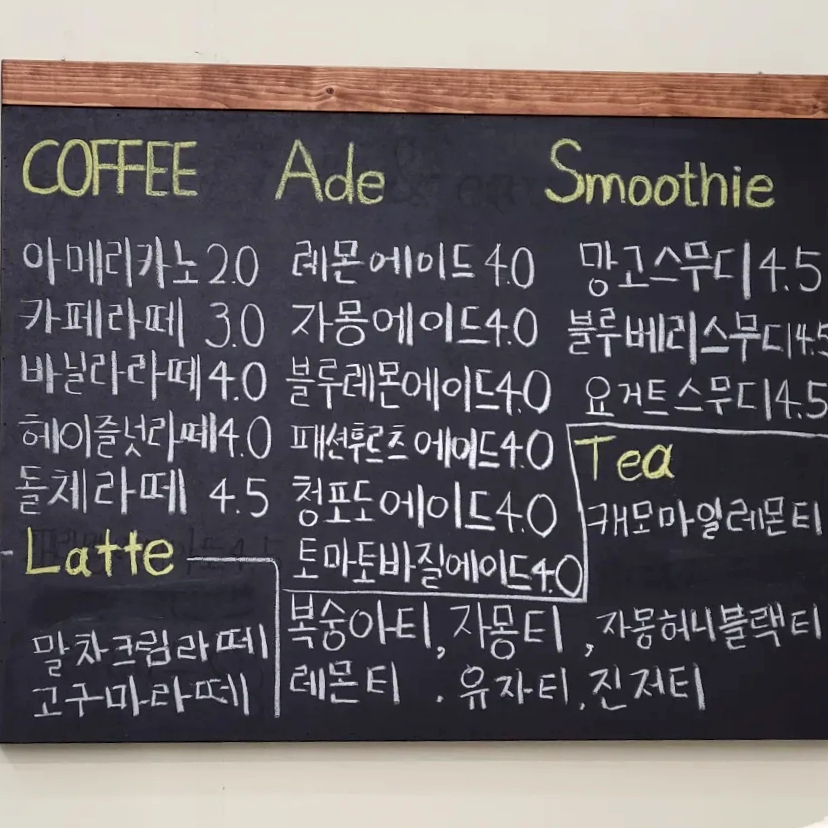 COFFEE
아메리카노 2.0
카페라떼 3.0
바닐라라떼 4.0
헤이즐넛라떼 4.0
돌체라떼 4.5
Latte
말차크림라떼
고구마라떼
Ade
레몬에이드 4.0
자몽에이드 4.0
블루레몬에이드 4.0
패션후르츠에이드 4.0
청포도에이드 4.0
토마토바질에이드 4.0
Smoothie
망고스무디 4.5
블루베리스무디 4.5
요거트스무디 4.5
Tea
캐모마일레몬티
복숭아티, 자몽티, 자몽허니블랙티
레몬티. 유자티. 진저티